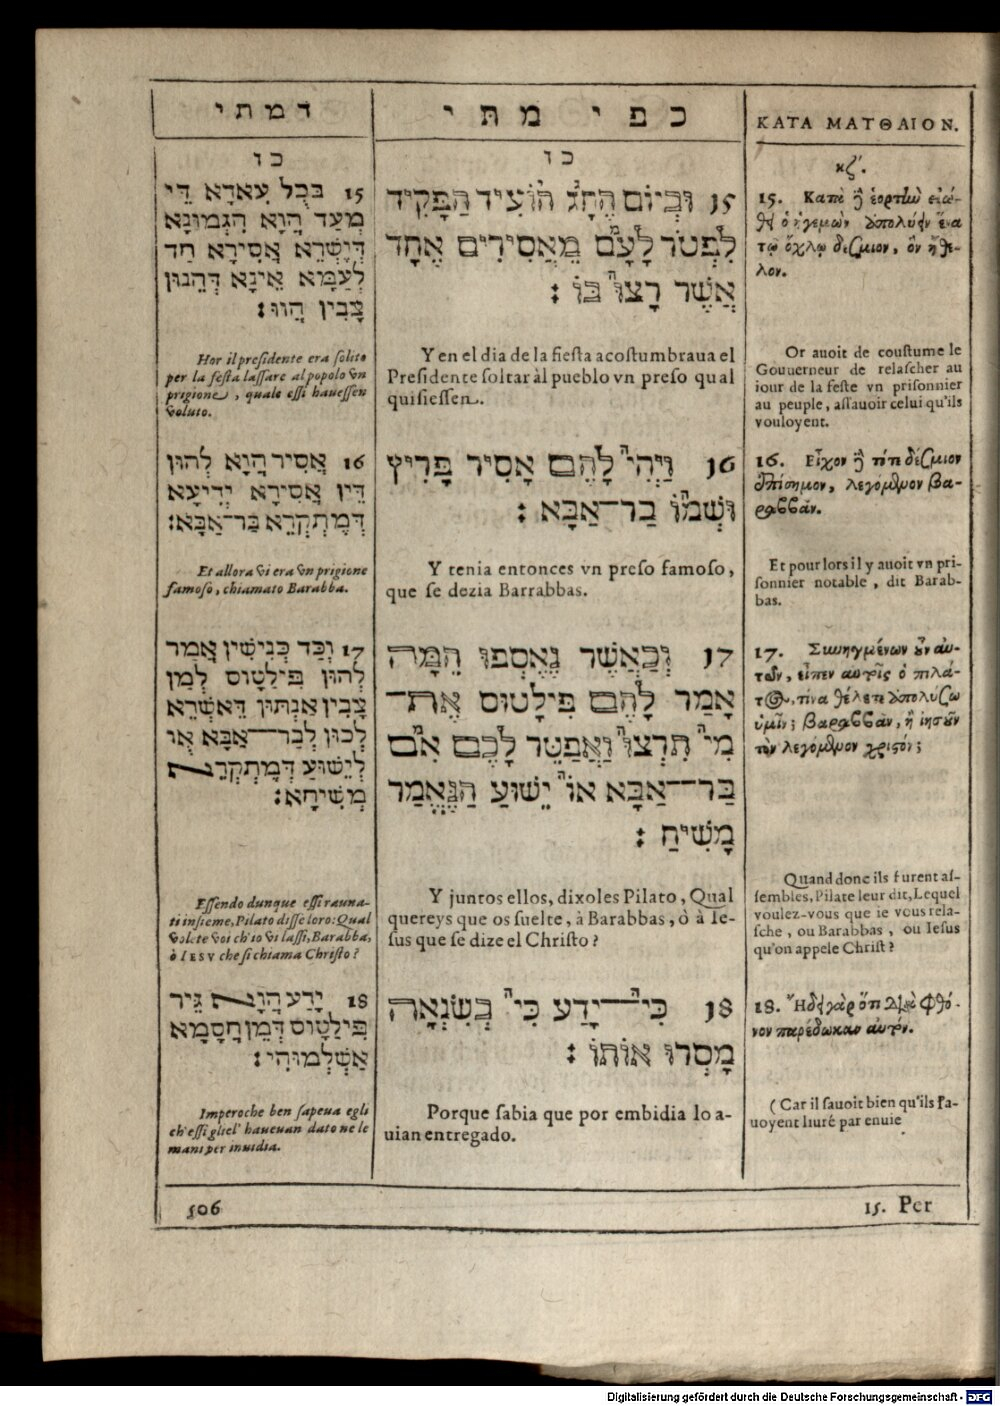 דמתי
כו
15 בכל עאדא די
מעד הוא הגמונא
דישרא אסירא חד
לעמא אינא דהנון
צבין הוו:
Hor il preſidente era ſolito
per la feſta laſſare al popolo vn
prigione, quale eſſi haueſſen
voluto.
16 אסיר הוא להון
דין אסירא ידיעא
דמתקרא בר־אבא:
Et allora vi era vn prigione
famoſo, chiamato Barabba.
17 וכד כנישין אמר
להון פילטוס למן
צבין אנתון דאשרא
לכון לבר־אבא או
לישוע דמתקרא
משיחא:
Eſſendo dunque eſſi rauna-
ti inſieme, Pilato diſſe loro: Qual
volete voi ch'io vi laſſi, Barabba,
ò IESV che ſi chiama Chriſto?
18 ידע הוא גיר
פילטוס דמן חסמא
אשלמוהי:
Imperoche ben ſapeua egli
ch'eſſi gliel' haueuan dato ne le
mani per inuidia.
כפי מתי
כו
15 וביום החג הועיד הפקיד
לפטר לעם מאסירים אחד
אשר רצו בו:
Y en el dia de la fieſta acoſtumbraua el
Preſidente ſoltar àl pueblo vn preſo qual
quiſieſſen.
16 ויהי להם אסיר פריץ
ושמו בר־אבא:
Y tenia entonces vn preſo famoſo,
que ſe dezia Barrabbas.
17 וכאשר נאספו המה
אמר להם פילטוס את־
מי תרצו ואפטר לכם אם
בר־אבא או ישוע הנאמר
משיח:
Y juntos ellos, dixoles Pilato, Qual
quereys que os ſuelte, à Barabbas, ò à Ie-
ſus que ſe dize el Chriſto?
18 כי־ידע כי בשנאה
מסרו אותו:
Porque ſabia que por embidia lo a-
uian entregado.
ΚΑΤΑ ΜΑΤΘΑΙΟΝ.
κζ'.
15. Κατὰ ἢ ἑορτὴν εἰώ-
θει ὁ ἡγεμὼν ἀπολύειν ἕνα
τῷ ὄχλῳ δέσμιον, ὃν ἤθε-
λον.
Or auoit de couſtume le
Gouuerneur de relaſcher au
iour de la feſte vn priſonnier
au peuple, aſſauoir celui qu'ils
vouloyent.
16. Εἶχον ἢ τότε δέσμιον
ἐπίσημον, λεγόμενον Βα-
ραββᾶν.
Et pour lors il y auoit vn pri-
ſonnier notable, dit Barab-
bas.
17. Συνηγμένων οὖν αὐ-
τῶν, εἶπεν αὐτοῖς ὁ πιλά-
τος, τίνα θέλετε ἀπολύσω
ὑμῖν; βαραββᾶν, ἢ ἰησοῦν
τὸν λεγόμενον χριστόν;
Quand donc ils furent aſ-
ſembles, Pilate leur dit, Lequel
voulez-vous que ie vous rela-
ſche, ou Barabbas, ou Ieſus
qu'on appele Chriſt?
18. Ἤδει γὰρ ὅτι διὰ φθό-
νον παρέδωκαν αὐτόν.
(Car il ſauoit bien qu'ils l'a-
uoyent liuré par enuie
506
15. Per
Digitalisierung gefördert durch die Deutsche Forschungsgemeinschaft - DFG